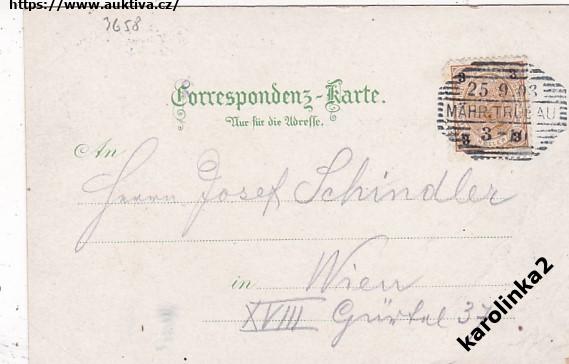 https://www.auktiva.cz/
3658
Correspondenz-Karte.
Nur für die Adresse.
3 3
25 9 03
MÄHR. TRÜBAU
3
3 3
An
Herrn Josef Schindler
in Wien
XVIII Gürtel 37
karolinka2